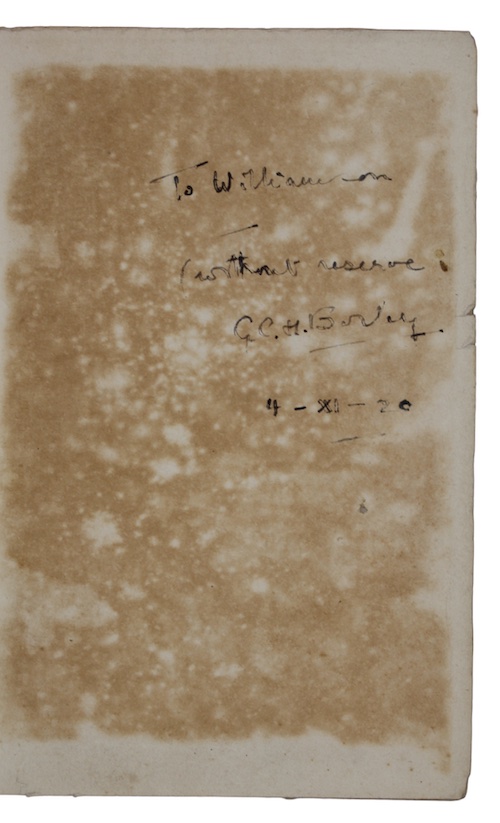 To Williamson
(without reserve)
G.C.H. Borley.
4 - XI - 20